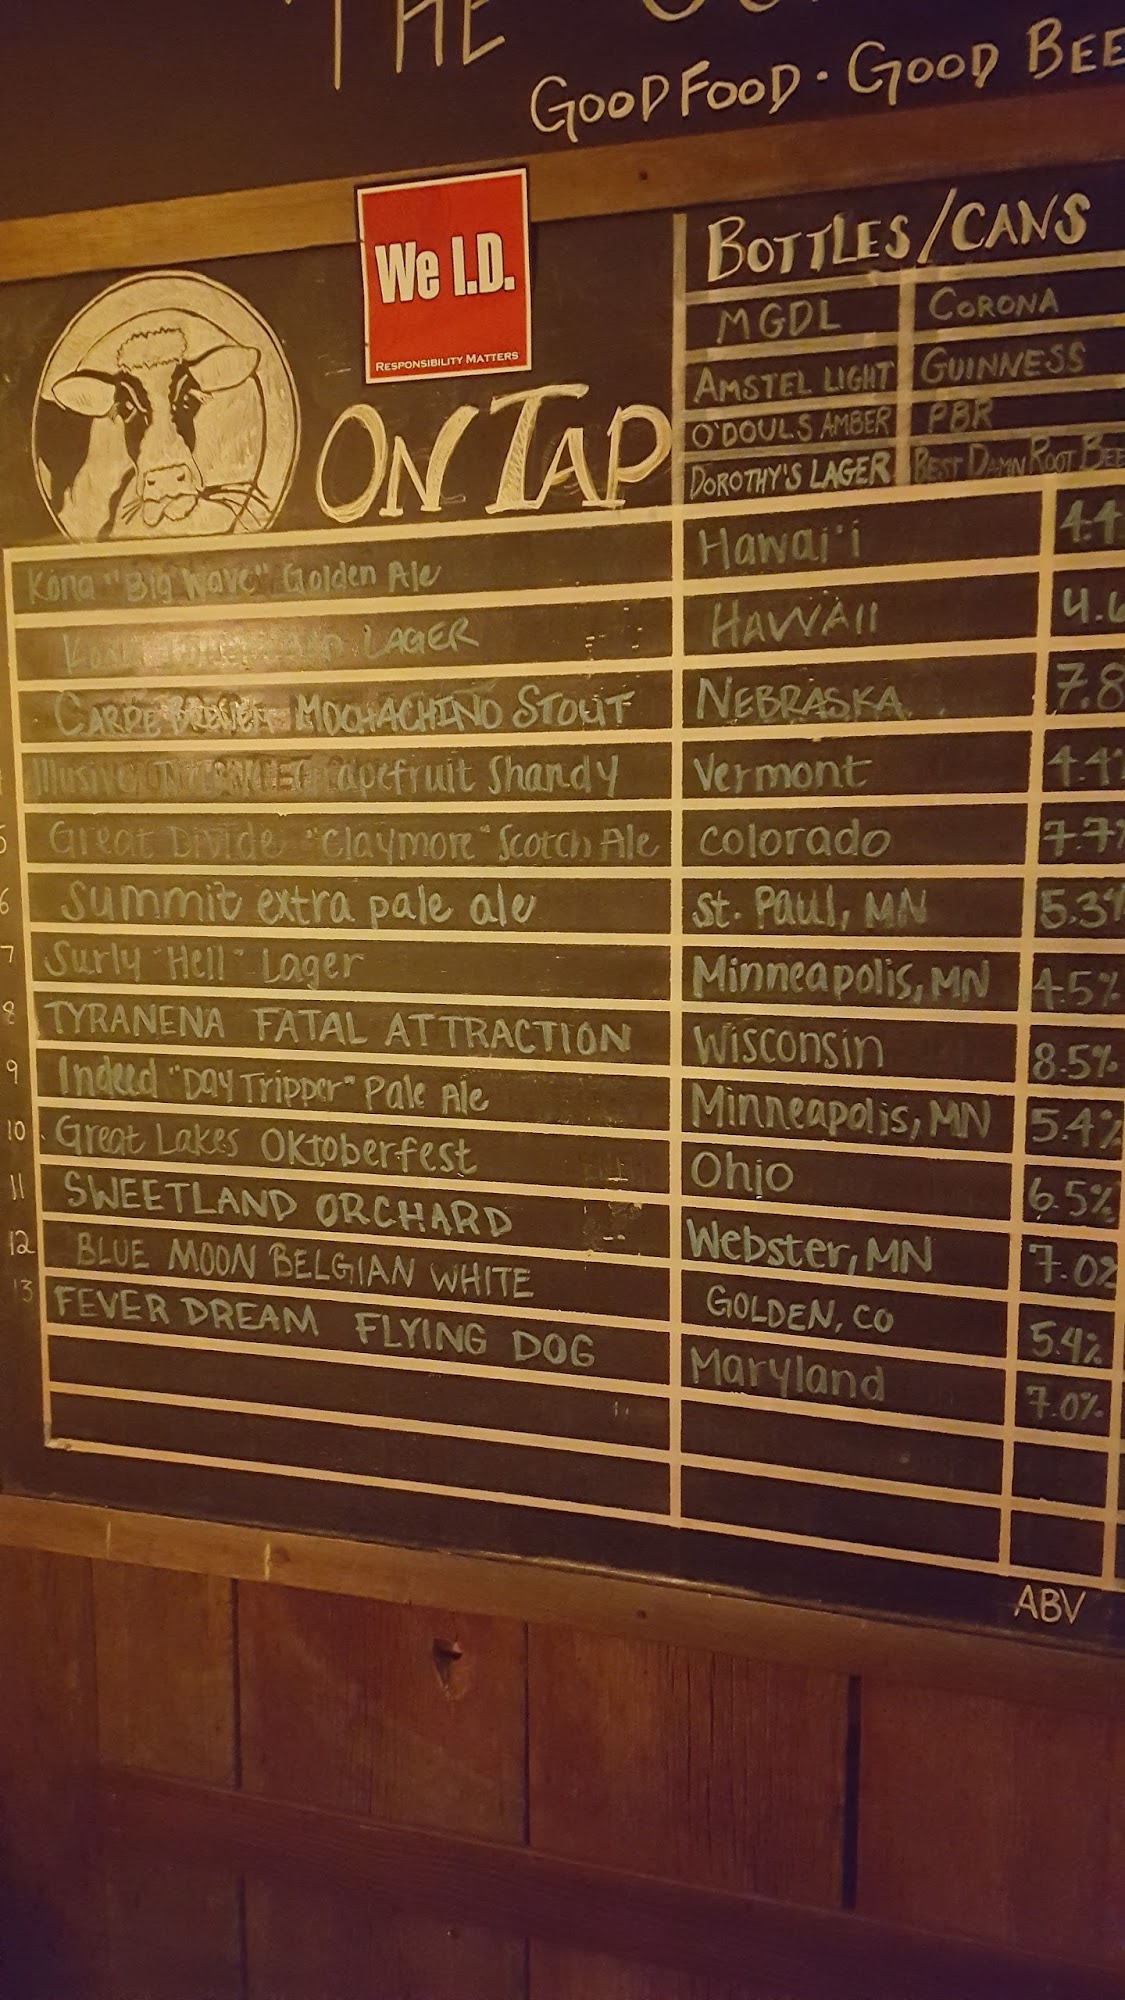 THE
GOOD FOOD · GOOD BEE
We I.D.
RESPONSIBILITY MATTERS
ON TAP
BOTTLES/CANS
MGDL CORONA
AMSTEL LIGHT GUINNESS
O'DOULS AMBER PBR
DOROTHY'S LAGER BEST DAMN ROOT BEE
Kona "Big Wave" Golden Ale Hawai'i 4.4
LAGER HAWAII 4.6
CARPE MOCHACHINO STOUT NEBRASKA 7.8
Grapefruit Shandy Vermont 4.4%
5 Great Divide "Claymore" Scotch Ale Colorado 7.7%
6 Summit extra pale ale St. Paul, MN 5.3%
7 Surly "Hell" Lager Minneapolis, MN 4.5%
8 TYRANENA FATAL ATTRACTION Wisconsin 8.5%
9 Indeed "Day Tripper" Pale Ale Minneapolis, MN 5.4%
10 Great Lakes Oktoberfest Ohio 6.5%
11 SWEETLAND ORCHARD Webster, MN 7.0%
12 BLUE MOON BELGIAN WHITE GOLDEN, CO 5.4%
13 FEVER DREAM FLYING DOG Maryland 7.0%
ABV